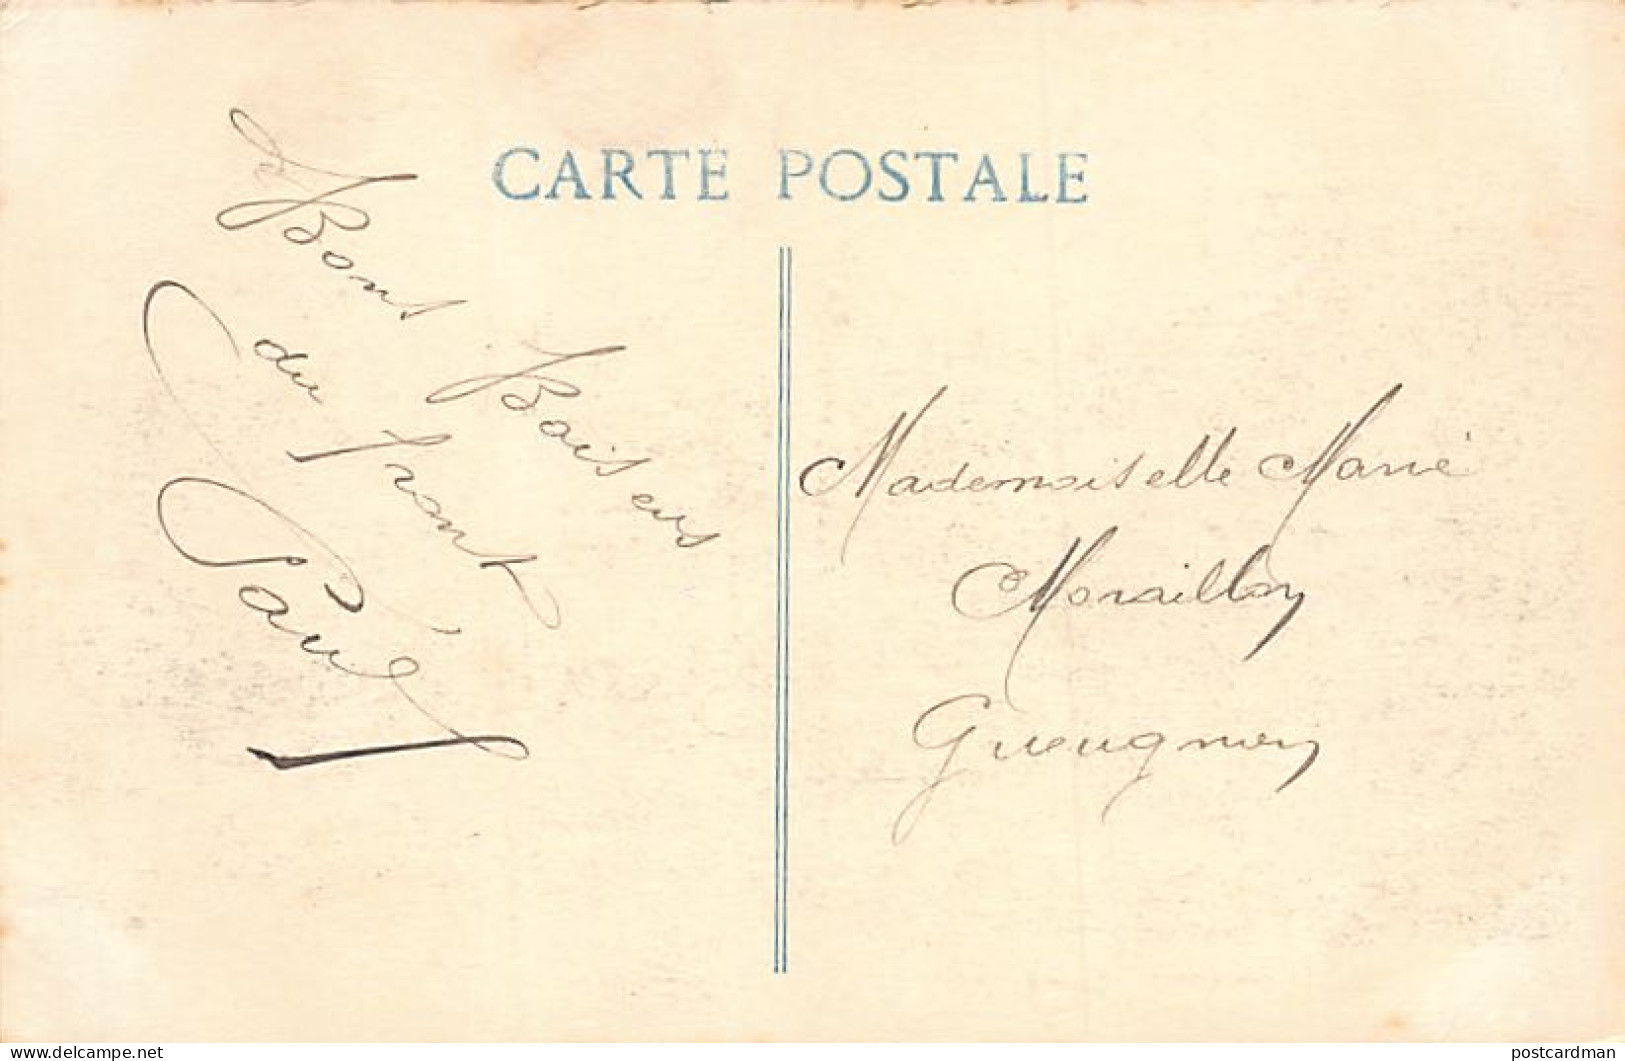 CARTE POSTALE
Bons Baisers
du front
Paul
Mademoiselle Marie
Moraillon
Gueugnon
postcardman